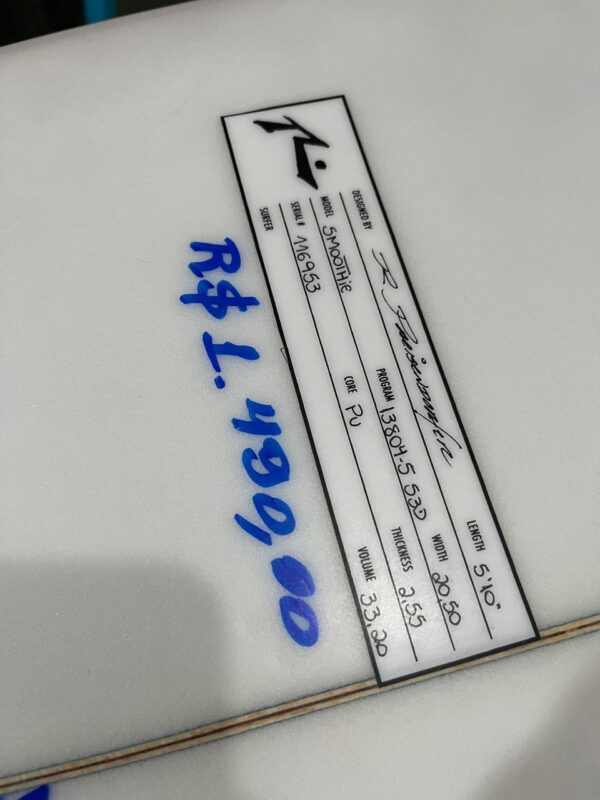 DESIGNED BY
LENGTH 5'10"
MODEL SMOOTHIE PROGRAM 13804-5 530 WIDTH 20,50
SERIAL# 116953 CORE PU THICKNESS 2,55
SURFER VOLUME 33,20
R$ 1.490,00